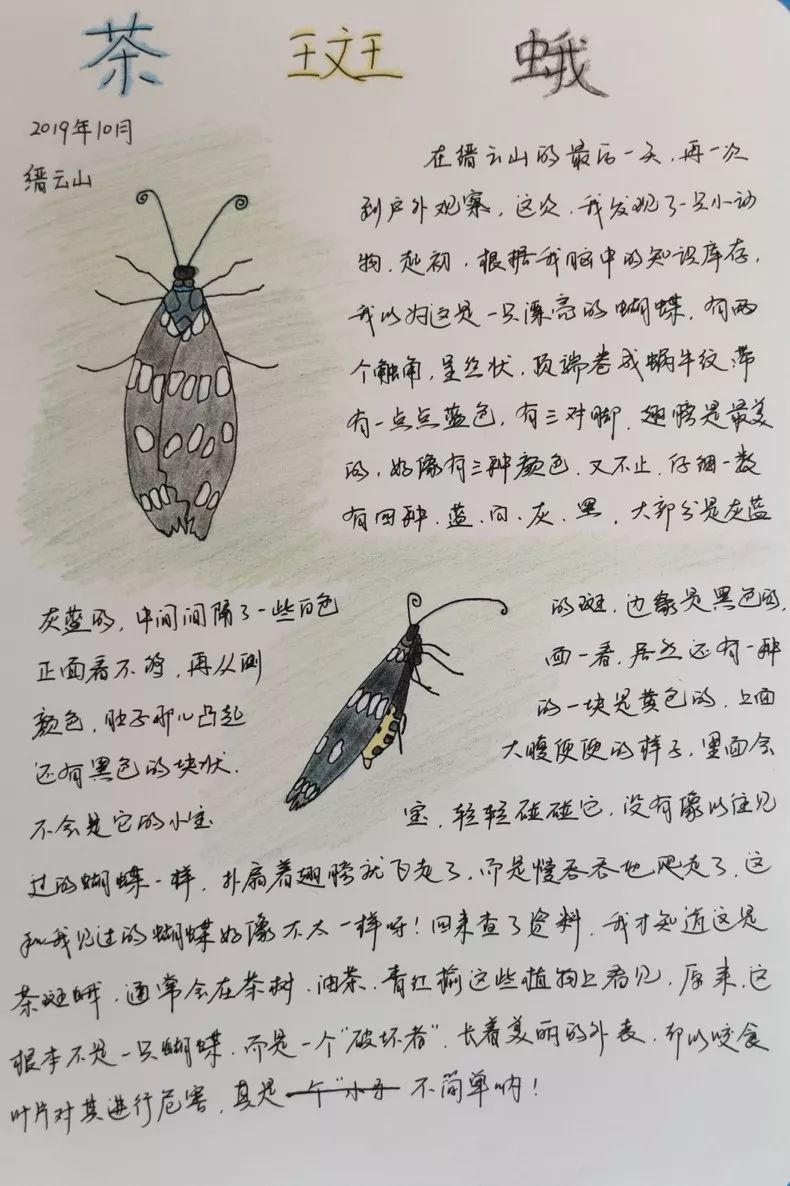 茶斑蛾
2019年10月
缙云山
在缙云山的最后一天,再一次
到户外观察,这次,我发现了一只小动
物,起初,根据我脑中的知识库存,
我以为这是一只漂亮的蝴蝶,有两
个触角,呈丝状,顶端卷成蜗牛纹,带
有一点点蓝色,有三对脚,翅膀是最美
的,好像有三种颜色,又不止,仔细一数
有四种,蓝、白、灰、黑,大部分是灰蓝
灰蓝的,中间间隔了一些白色的斑,边缘是黑色的,
正面看不够,再从侧面一看,居然还有一种
颜色,肚子那儿凸起的一块是黄色的,上面
还有黑色的块状.大腹便便的样子,里面会
不会是它的小宝宝,轻轻碰碰它,没有像以往见
过的蝴蝶一样,扑扇着翅膀就飞走了,而是慢吞吞地爬走了,这
和我见过的蝴蝶好像不太一样呀!回来查了资料,我才知道这是
茶斑蛾,通常会在茶树、油茶、青红榆这些植物上看见,原来,这
根本不是一只蝴蝶,而是一个“破坏者”,长着美丽的外表,却以咬食
叶片对其进行危害,真是不简单呐!